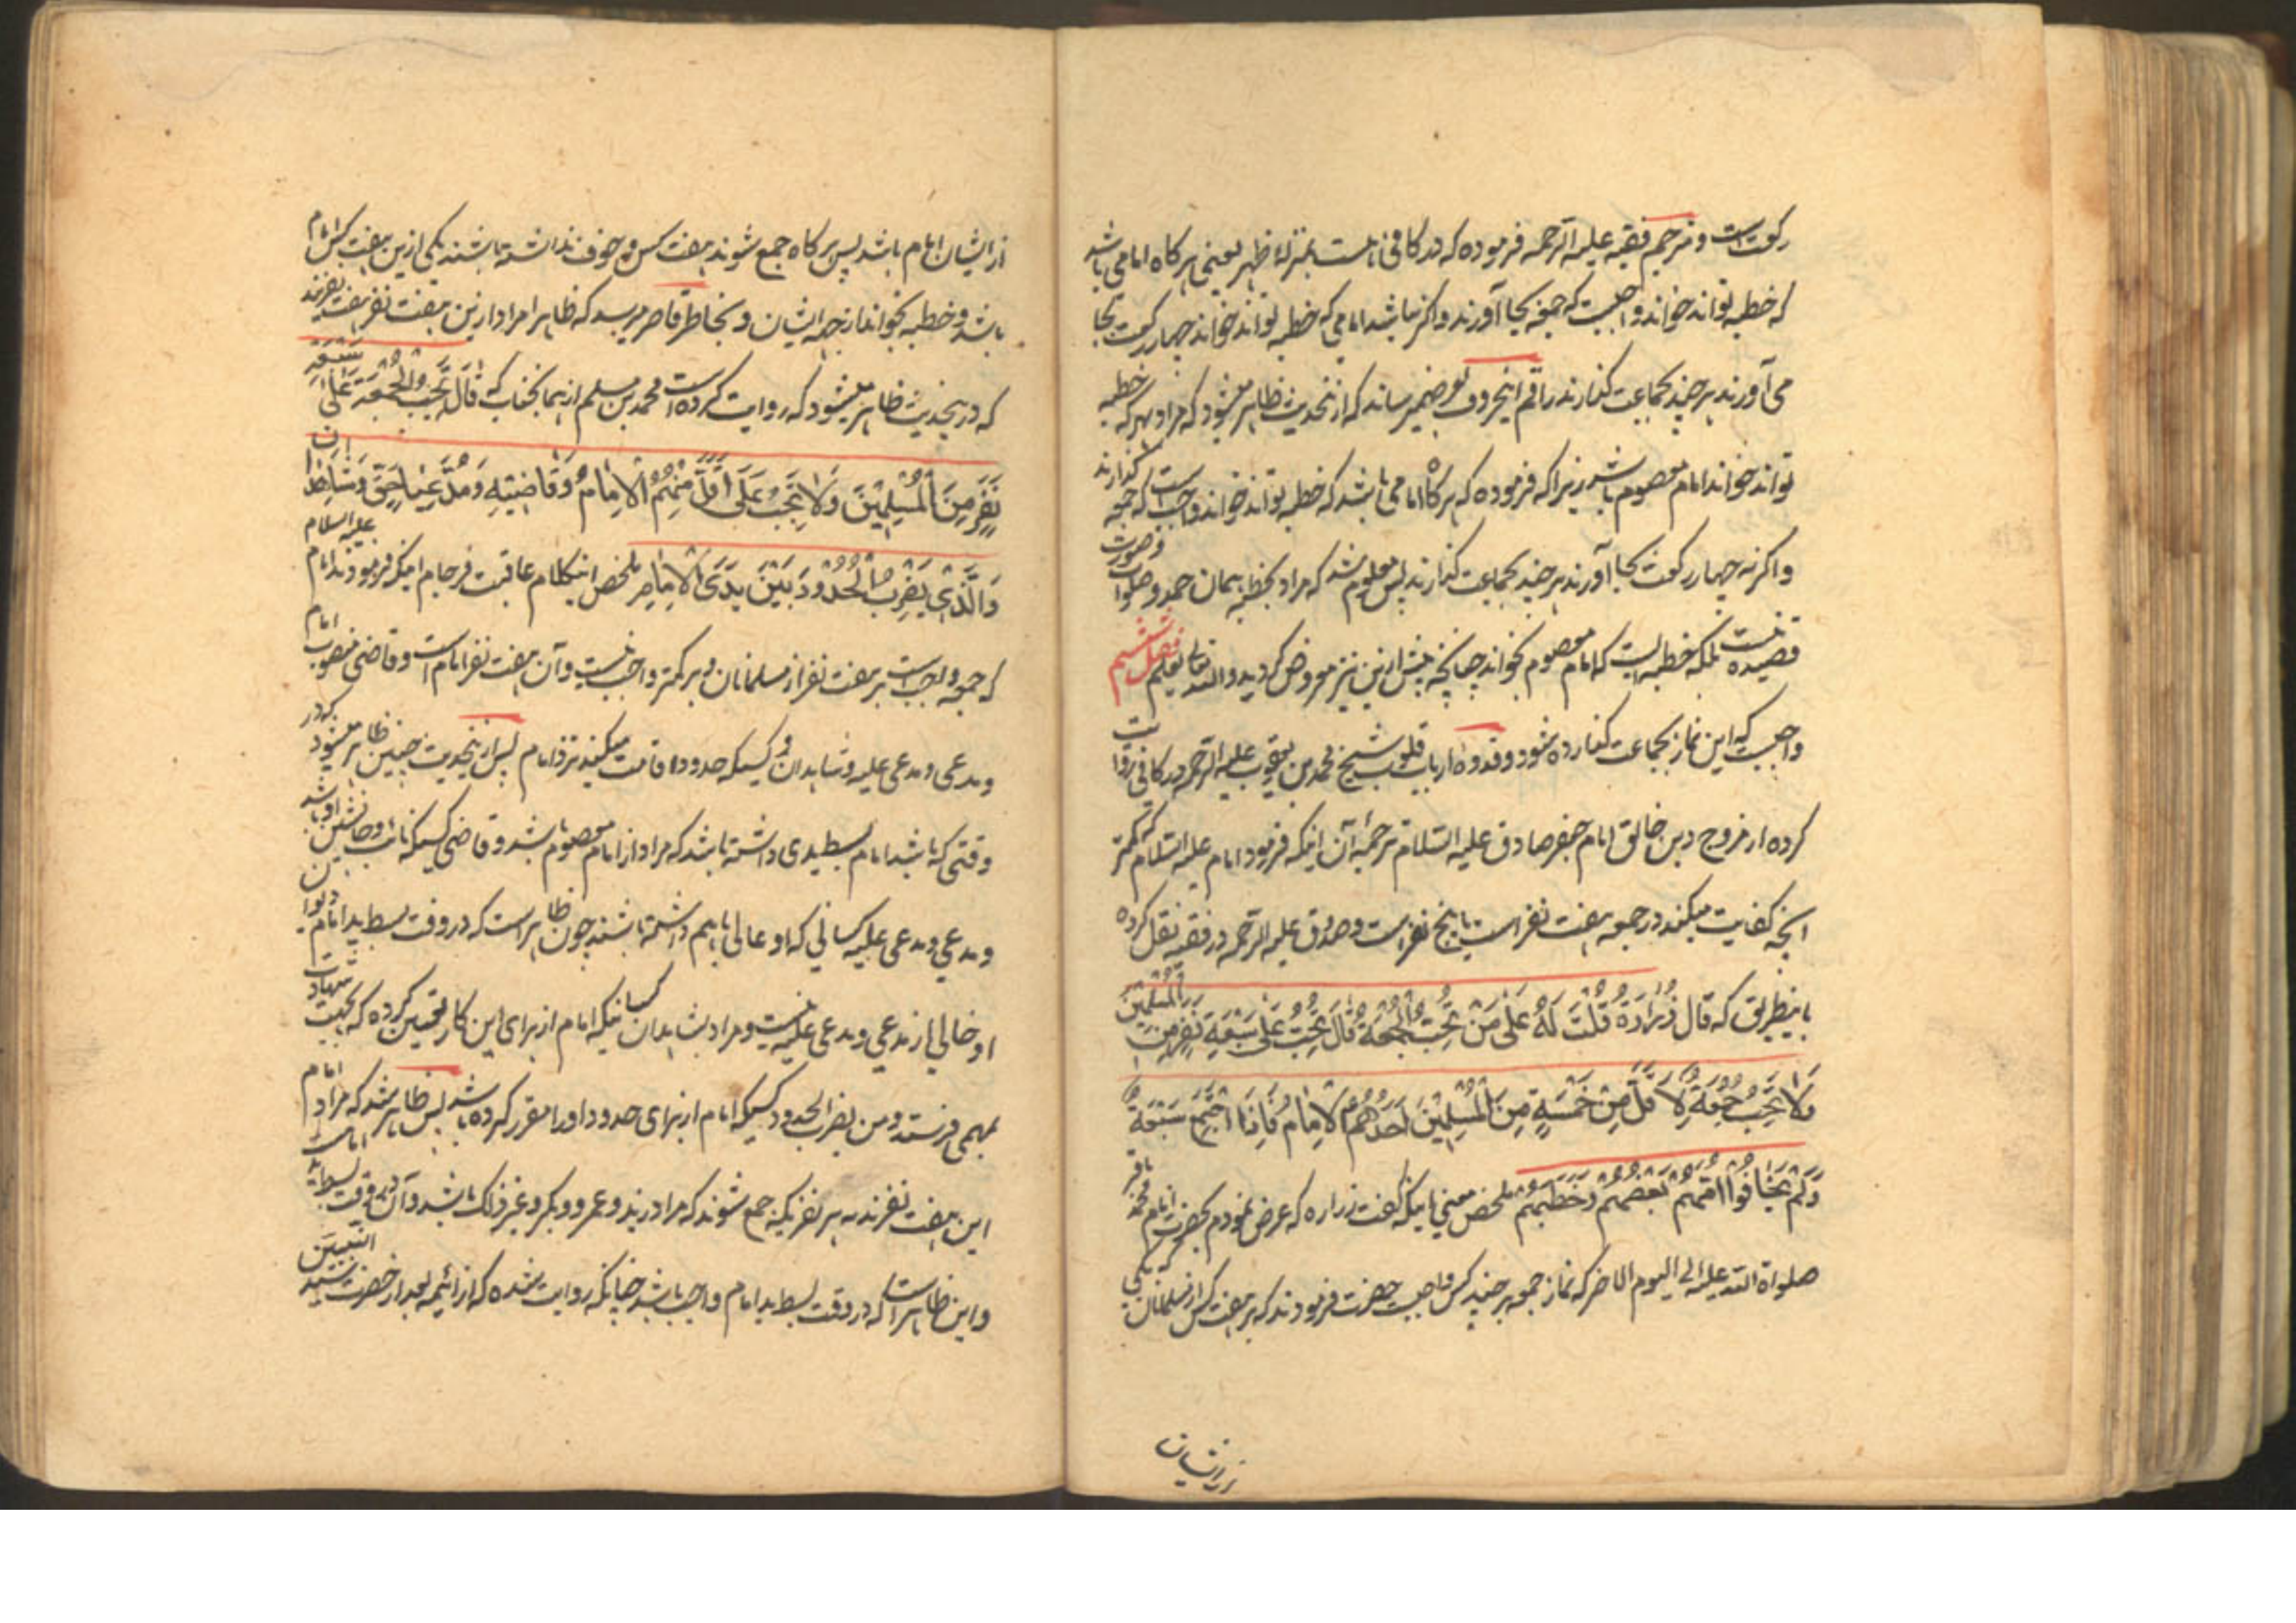 رکعت است و مترجم فقیه علیه الرحمه فرموده که در کافی نیست بمنزلهٔ ظهر یعنی هر کاه امامی باشد
که خطبه تواند خواند واجبست که جمعه بجا آورند و اکر نباشد امامی که خطبه تواند خواند چهار رکعت بجا
می آورند هر چند بجماعت کذارند راقم اینحروف بعرض میرساند که از نحدیث ظاهر میشود که مراد بهر که خطبه
تواند خواند امام معصوم باشد زیرا که فرموده که هر کاه امامی باشد که خطبه تواند خواند واجبست که جمعه کذارند
و اکر نه چهار رکعت بجا آورند هر چند بجماعت کذارند پس معلوم شد که مراد بخطبه همان حمد و صلوات و صورت
قصیده نیست بلکه خطبه ایست که امام معصوم بخواند چنانچه پیش ازین نیز معروض کردید والله تعالی یعلم فصل ششم
واجبست که این نماز بجماعت کذارده شود و قدوهٔ ارباب قلوب شیخ محمد بن یعقوب علیه الرحمه در کافی روایت
کرده از مروج دین خالق امام جعفر صادق علیه السلام ترجمهٔ آن اینکه فرمود امام علیه السلام که کمتر
آنچه کفایت میکند در جمعه هفت نفر است یا پنج نفر است و صدوق علیه الرحمه در فقیه نقل کرده
باینطریق که قال زُرارَة قُلْتَ لَهُ عَلَی مَنْ تَجِبُ الجُمعَةُ قَالَ تَجِبُ عَلَی سَبْعَةِ نَفَرٍ مِنَ المُسْلِمینَ
وَلا تَجِبُ جُمعَة لِاَ قَلَّ مِنْ خَمْسَةٍ مِنَ المُسْلِمِیْنَ اَحَدُهُمْ الاِمَامُ فَاِذَا اجْتَمَعَ سَبْعَةُ
وَلَمْ یَخَافُوا اَمَّهُمْ بَعْضُهُمْ وَخَطَبَهُمْ ملخص معنی اینکه کفت زراره که عرض نمودم بحضرت امام محمد باقر
صلواة الله علیه الی الیوم الاخر که نماز جمعه بر چند کس واجبست حضرت فرمودند که بر هفت کس از مسلمانان که یکی
از ایشان امام باشد پس هر کاه جمع شوند هفت کس و خوف نداشته باشند یکی ازین هفت کس امام
باشد و خطبه بخواند از جهة ایشان و بخاطر قاصر میرسد که ظاهرا مراد ازین هفت نفر هفت نفرند
که درینحدیث ظاهر میشود که روایت کرده است محمد بن مسلم از همانجناب که قَالَ تَجِبُ الْجُمْعَةُ عَلَی سَبْعَةِ
نَفَرٍ مِنَ الْمُسْلِمِیْنَ وَلَا تَجِبُ عَلَی اَقَلَّ مِنْهُمْ الاِمَامُ وَقَاضِیْهِ وَمُدَّعِیَاحَقٍّ وَشَاهِدَانِ
وَالَّذِی یَضْرِبُ الْحُدُوْدَ بَیْنَ یَدَیِ الاِمَامِ ملخص اینکلام عاقبت فرجام اینکه فرمودند امام علیه السلام
که جمعه واجب است بر هفت نفر از مسلمانان و بر کمتر واجب نیست و آن هفت نفر امام است و قاضی منصوب امام
و مدعی و مدعی علیه و شاهدان و کسیکه حدود اقامت میکند نزد امام پس ازینحدیث چنین ظاهر میشود که در
وقتی که باشد امام بسط یدی داشته باشد که مراد از امام معصوم باشد و قاضی کسیکه نائب و جانشین او باشد
و مدعی و مدعی علیه کسانی که دعوائی با هم داشته باشند چون ظاهر است که در وقت بسط ید امام دیوان
او خالی از مدعی و مدعی علیه نیست و مراد بشاهدان کسانیکه امام از برای این کار تعیین کرده که بجهت شهادت
بهمی فرستد و من یضرب الحدود کسیکه امام از برای حدود او را مقرر کرده باشد پس ظاهر شد که مراد امام
این هفت نفرند نه هر نفریکه جمع شوند که مراد زید و عمرو و بکر و غیر ذلک باشد و آن در وقت بسط ید امامست
و این ظاهر است که در وقت بسط ید امام واجب باشد چنانکه روایت شده که از ائیمه بعد از حضرت سید النبیین
از ایشان